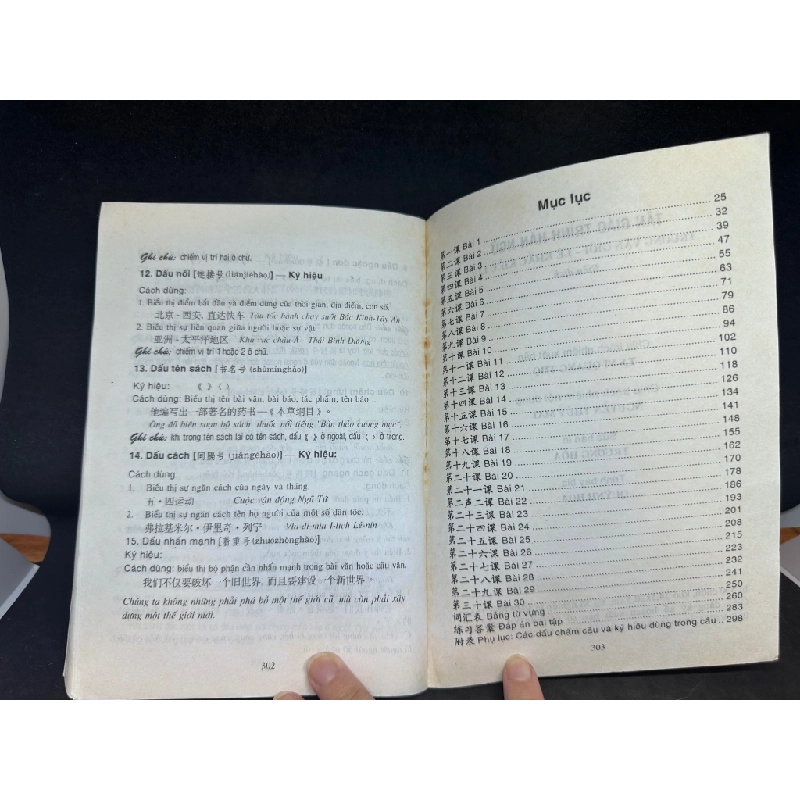 Ghi chú: chiếm vị trí hai ô chữ.
12. Dấu nối [连接号 (liánjiēhào)] — Ký hiệu
Cách dùng:
1. Biểu thị điểm bắt đầu và điểm dừng của thời gian, địa điểm, con số.
北京 - 西安, 直达快车 Tàu tốc hành chạy suốt Bắc Kinh-Tây An
2. Biểu thị sự liên quan giữa người hoặc sự vật
亚洲 - 太平洋地区 Khu vực châu Á Thái Bình Dương.
Ghi chú: chiếm vị trí 1 hoặc 2 ô chữ.
13. Dấu tên sách [书名号 (shūmínghào)]
Ký hiệu: 《 》〈 〉
Cách dùng: Biểu thị tên bài văn, bài báo, tác phẩm, tên báo
他编写出一部著名的药书—《本草纲目》。
Ông đã biên soạn bộ sách thuốc nổi tiếng "Bản thảo cương mục".
Ghi chú: khi trong tên sách lại có tên sách, dấu 《 》 ở ngoài, dấu 〈 〉 ở trong.
14. Dấu cách [间隔号 (jiàngéhào)] — Ký hiệu:
Cách dùng
1. Biểu thị sự ngăn cách của ngày và tháng
五·四运动 Cuộc vận động Ngũ Tứ
2. Biểu thị sự ngăn cách tên họ người của một số dân tộc.
弗拉基米尔·伊里奇·列宁 Vla-di-mia I-lich Lê-nin
15. Dấu nhấn mạnh [着重号 (zhuózhònghào)]
Ký hiệu:
Cách dùng: biểu thị bộ phận cần nhấn mạnh trong bài văn hoặc câu văn.
我们不仅要破坏一个旧世界, 而且要建设一个新世界。
Chúng ta không những phải phá bỏ một thế giới cũ mà còn phải xây
dựng một thế giới mới.
302
Mục lục
第一课 Bài 1 25
第二课 Bài 2 32
第三课 Bài 3 39
第四课 Bài 4 47
第五课 Bài 5 55
第六课 Bài 6 63
第七课 Bài 7 71
第八课 Bài 8 79
第九课 Bài 9 86
第十课 Bài 10 94
第十一课 Bài 11 102
第十二课 Bài 12 110
第十三课 Bài 13 118
第十四课 Bài 14 126
第十五课 Bài 15 134
第十六课 Bài 16 141
第十七课 Bài 17 148
第十八课 Bài 18 155
第十九课 Bài 19 162
第二十课 Bài 20 170
第二十一课 Bài 21 178
第二十二课 Bài 22 186
第二十三课 Bài 23 193
第二十四课 Bài 24 201
第二十五课 Bài 25 208
第二十六课 Bài 26 215
第二十七课 Bài 27 225
第二十八课 Bài 28 233
第二十九课 Bài 29 241
第三十课 Bài 30 250
词汇表 Bảng từ vựng 260
练习答案 Đáp án bài tập 283
附录 Phụ lục: Các dấu chấm câu và ký hiệu dùng trong câu .. 298
303